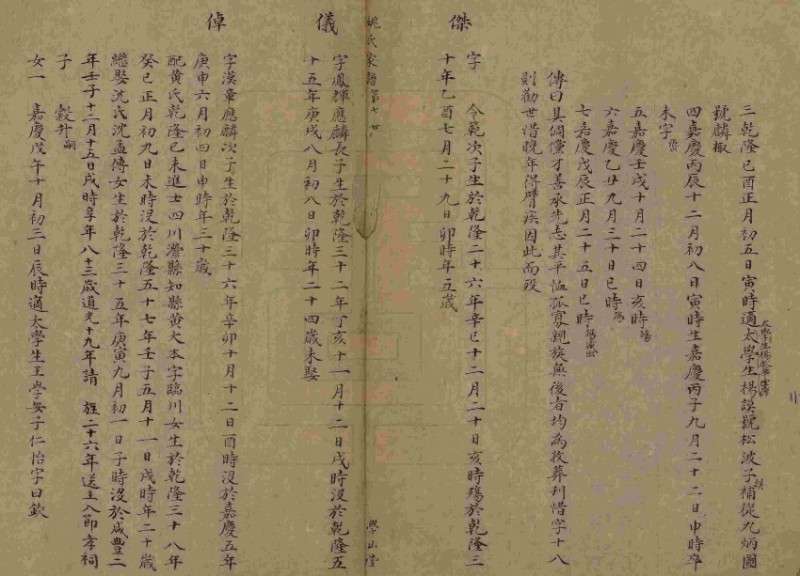 三乾隆己酉正月初五日寅時適太學生楊謨號松波子補從九炳圖
號麟椒
四嘉慶丙辰十二月初八日寅時生嘉慶丙子九月二十二日申時卒
未字
五嘉慶壬戌十月二十四日亥時殤
六嘉慶乙丑九月三十日巳時殤
七嘉慶戊辰正月二十五日巳時殤
傳曰具倜儻才善承先志其平恤孤寡親族無後者均為收葬刊惜字十八
則勸世惜晚年得臂疾因此而歿
傑
字 令範次子生於乾隆二十六年辛巳十二月二十日亥時殤於乾隆三
十年乙酉七月二十九日卯時年五歲
姚氏家譜第七世
學山堂
儀
字鳳輝應麟長子生於乾隆三十二年丁亥十一月十二日戌時沒於乾隆五
十五年庚戌八月初八日卯時年二十四歲未娶
倬
字漢章應麟次子生於乾隆三十六年辛卯十月十二日酉時沒於嘉慶五年
庚申六月初四日申時年三十歲
配黃氏乾隆己未進士四川灊縣知縣黃大本字臨川女生於乾隆三十八年
癸巳正月初九日未時沒於乾隆五十七年壬子五月十一日戌時年二十歲
繼娶沈氏沈孟傳女生於乾隆三十五年庚寅九月初一日子時沒於咸豐二
年壬子十二月十五日戌時享年八十三歲道光十九年請 旌二十六年送主入節孝祠
子 穀升嗣
女一 嘉慶戊午十月初三日辰時適太學生王學安子仁怡字曰欽